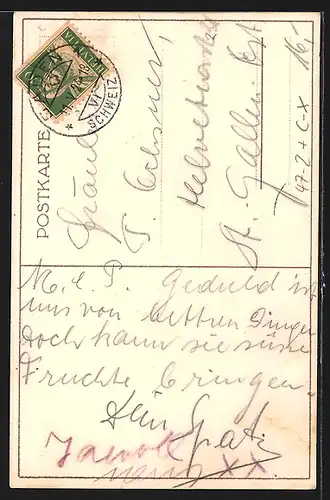 HELVETIA
BADEN
SCHWEIZ
POSTKARTE
Fräulein
T. Ochsner
Helvetiastr.
St. Gallen
16.-
47-2 + C-X
M. l. P. Geduld ist
uns von bittren Dingen
doch kann sie süsse
Früchte bringen
Dein Spatz
XX